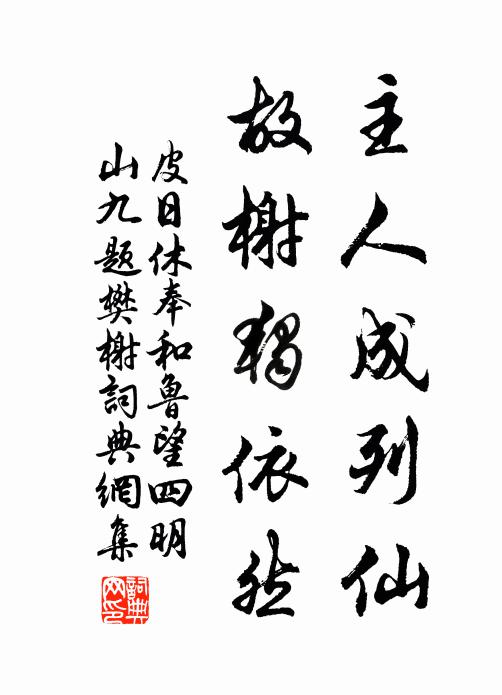 主人成列仙
故榭獨依然
皮日休奉和鲁望四明
山九题樊榭詞典網集
詞典网印